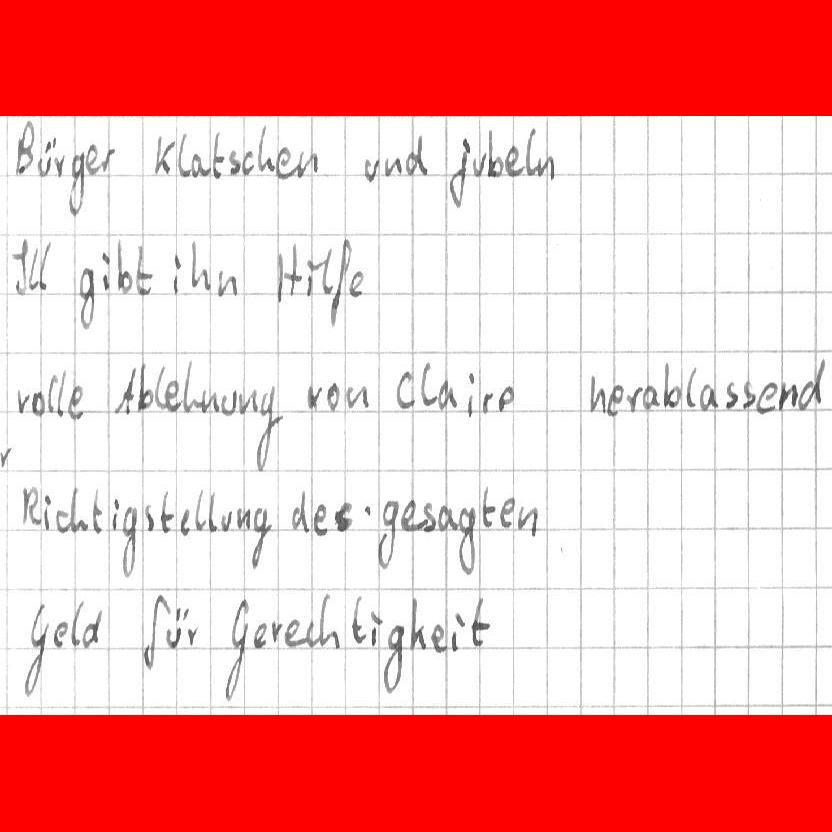 Bürger klatschen und jubeln
Ill gibt ihn Hilfe
volle Ablehnung von Claire herablassend
Richtigstellung des gesagten
Geld für Gerechtigkeit